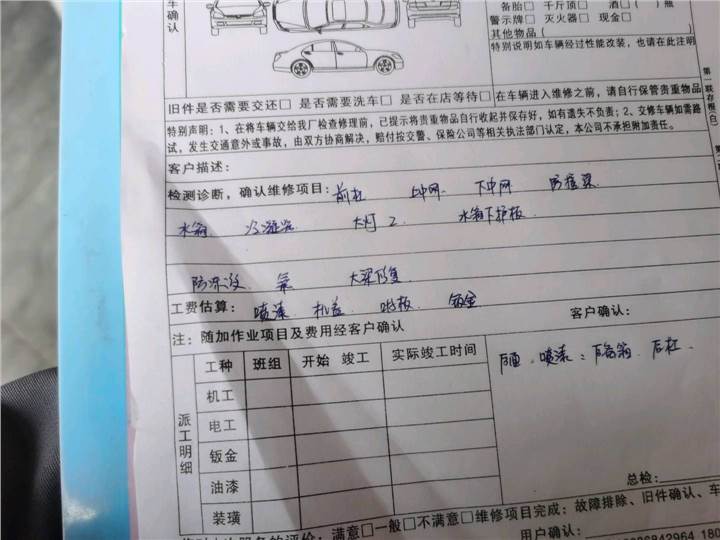 车 确 认
备胎□ 千斤顶□ 酒( )瓶
警示牌□ 灭火器□ 现金□
其他物品( )
特别说明如车辆经过性能改装，也请在此注明
第一联存根(白)
旧件是否需要交还□ 是否需要洗车□ 是否在店等待□ 在车辆进入维修之前，请自行保管贵重物品
特别声明：1、在将车辆交给我厂检查修理前，已提示将贵重物品自行收起并保存好，如有遗失不负责；2、交修车辆如需路
试，发生交通意外或事故，由双方协商解决，赔付按交警、保险公司等相关执法部门认定，本公司不承担附加责任。
客户描述：
检测诊断，确认维修项目：前杠 上中网 下中网 防撞梁
水箱 冷凝器 大灯2 水箱下护板
防冻液 氟 大梁修复
工费估算：喷漆 机盖 叶板 钣金
注：随加作业项目及费用经客户确认 客户确认：
派工明细
工种 班组 开始 竣工 实际竣工时间
喷漆：后备箱、后杠
机工
电工
钣金
油漆
装璜
总检：
满意□一般□不满意□维修项目完成：故障排除、旧件确认、车
用户确认：